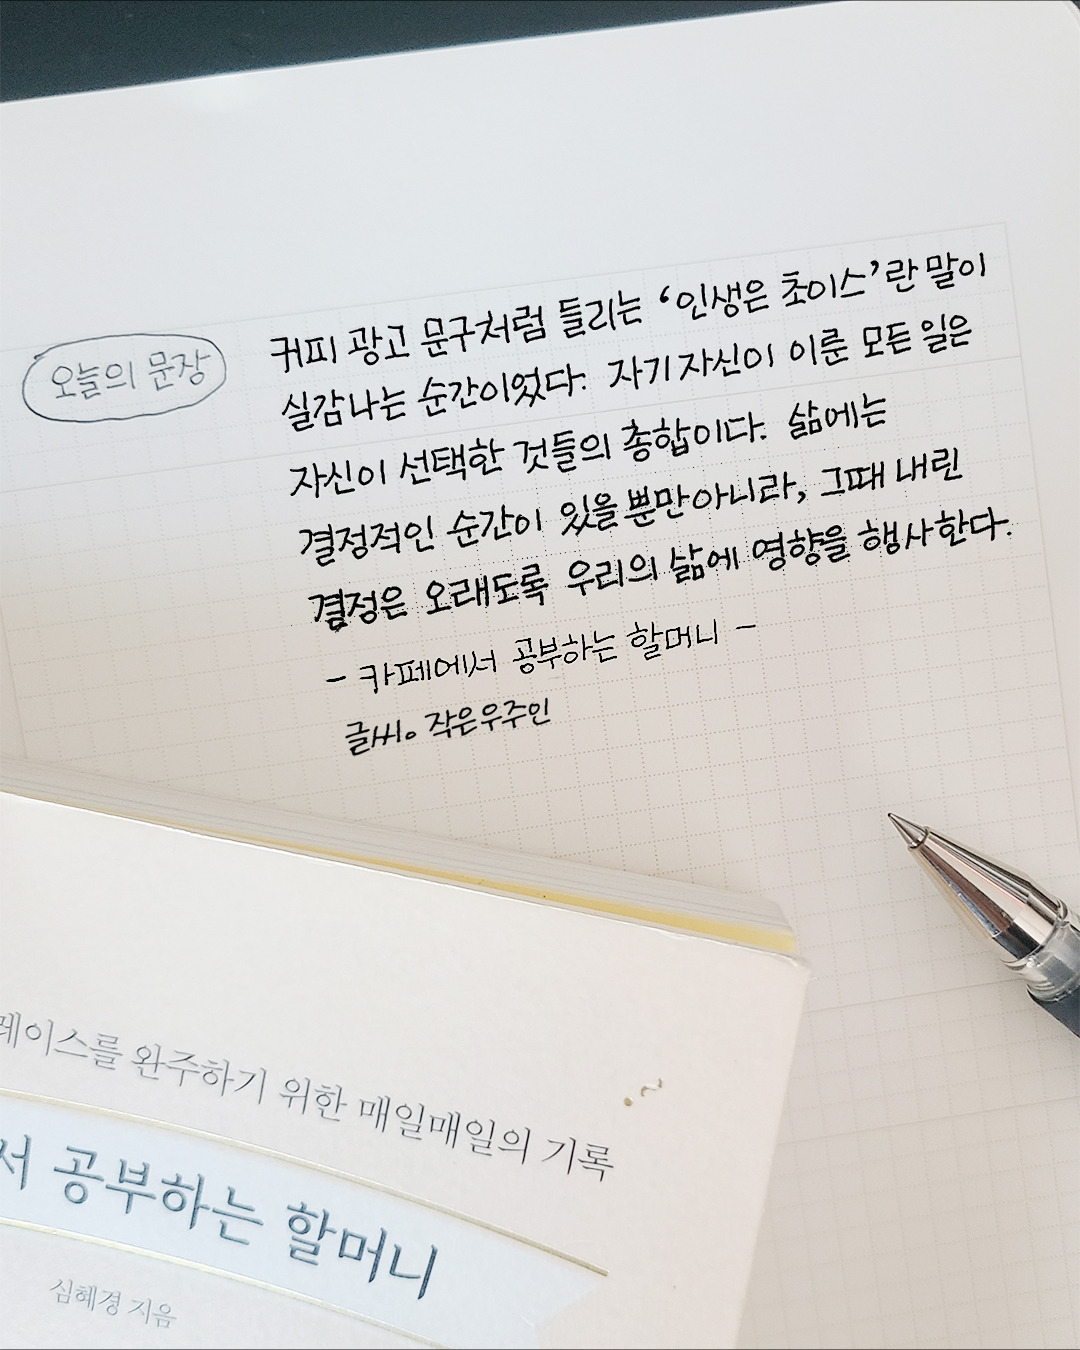 오늘의 문장
커피 광고 문구처럼 들리는 ‘인생은 초이스’란 말이
실감나는 순간이었다. 자기 자신이 이룬 모든 일은
자신이 선택한 것들의 총합이다. 삶에는
결정적인 순간이 있을 뿐만 아니라, 그때 내린
결정은 오래도록 우리의 삶에 영향을 행사한다.
- 카페에서 공부하는 할머니 -
글씨。작은우주인
레이스를 완주하기 위한 매일매일의 기록
서 공부하는 할머니
심혜경 지음